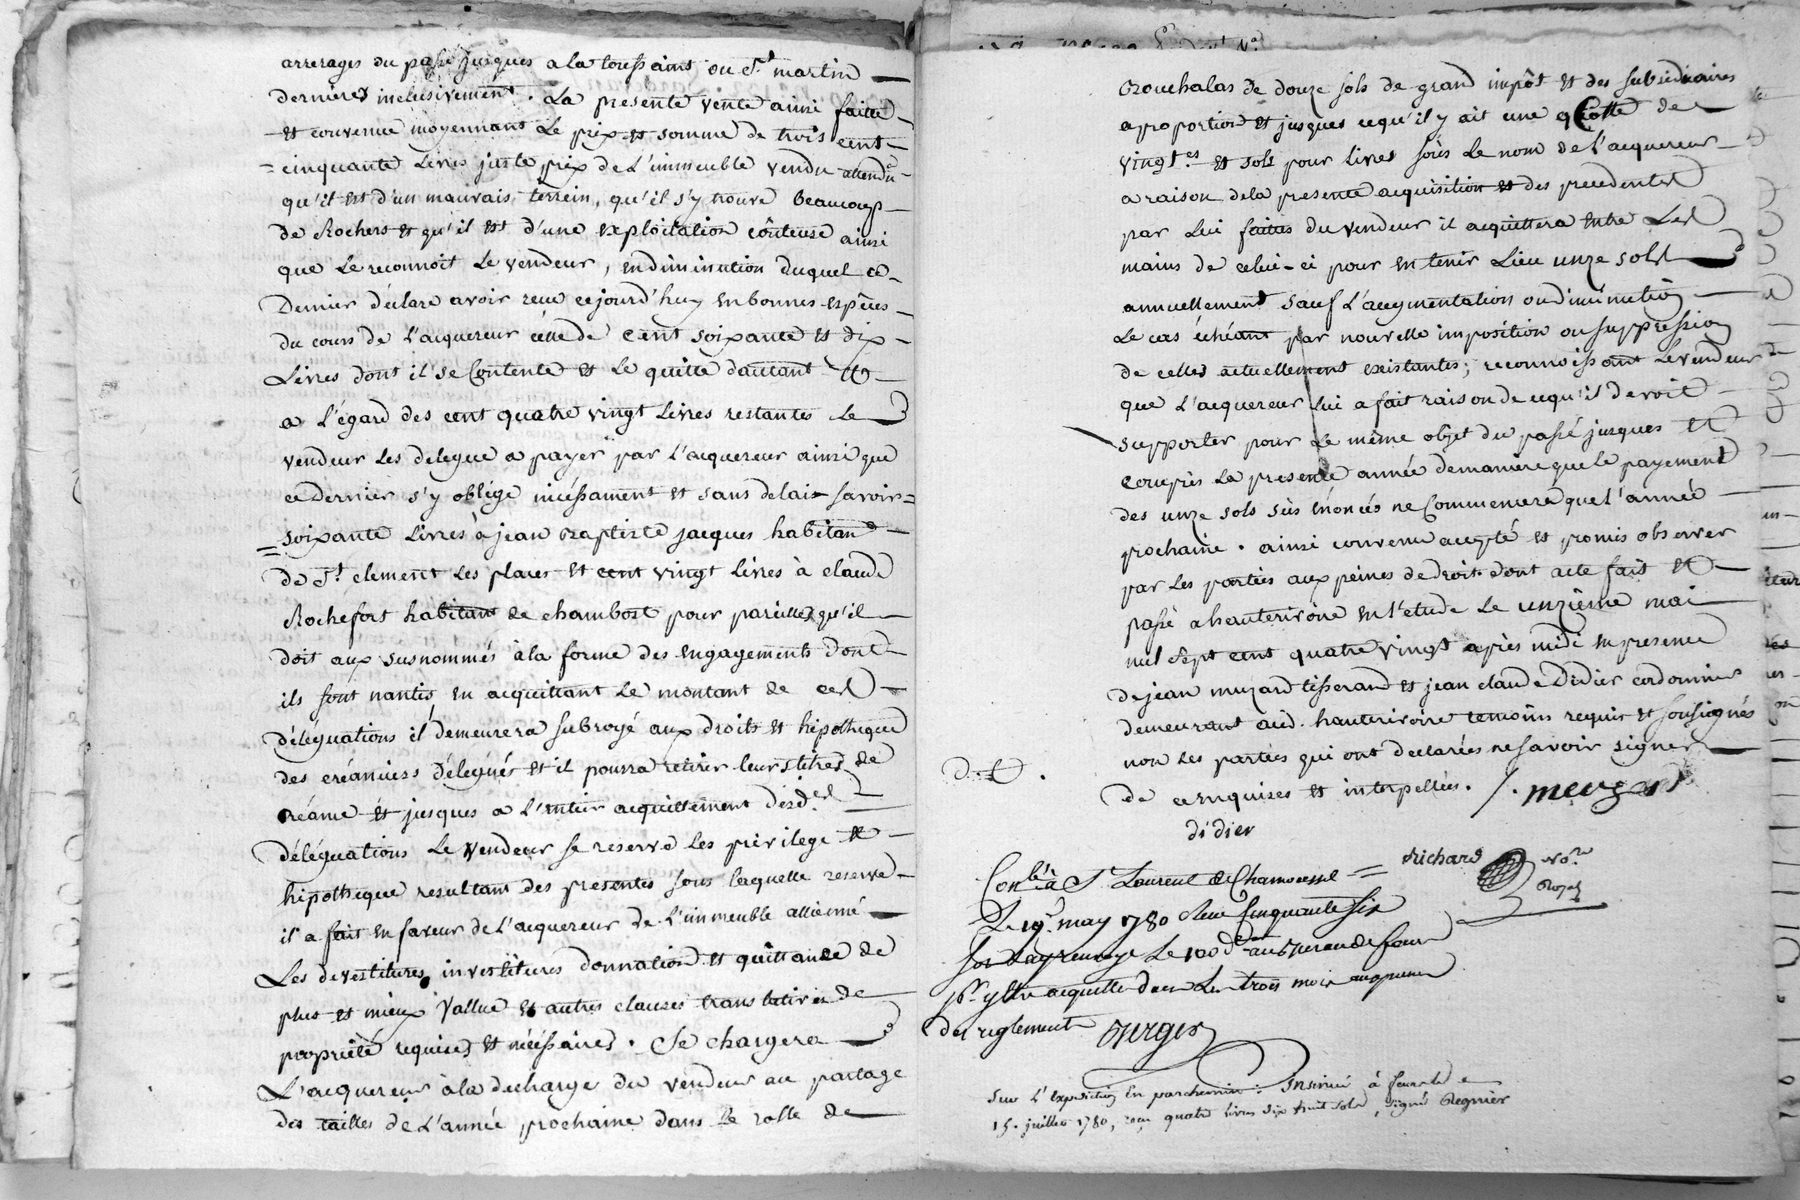 arrerages du passé jusques a la toussaint ou St martin
dernieres inclusivement. La presente vente ainsi faitte
et convenue moyennant Le prix et somme de trois cent
cinquante Livres juste prix de L'immeuble vendu attendu
qu'il est d'un mauvais terrein, qu'il s'y trouve beaucoup
de Rochers et qu'il est d'une exploitation coûteuse ainsi
que le reconnoit Le vendeur, en diminution duquel ce
Dernier déclare avoir reçu cejourd'huy en bonnes espèces
du cours de l'acquereur celle de cent soixante et dix
Livres dont il se Contente et Le quitte d'autant et
a L'égard des cent quatre vingt Livres restantes Le
vendeur Les delegue a payer par l'acquereur ainsi que
ce Dernier s'y oblige incéssament et sans delais savoir
soixante Livres à jean Baptiste jacques habitant
de St clement les places et cent vingt Livres à claude
Rochefort habitant de chambost pour pareilles qu'il
doit aux susnommés à la forme des engagements dont
ils sont nantis en acquittant Le montant de ces
déléguations il demeurera subrogé aux droits et hipotheque
des créanciers délégués et il pourra retirer leurs titres de
créance et jusques a L'entier acquittement desd.es
déléguations Le vendeur se reserve Les privilege et
hipotheque resultant des presentes sous laquelle reserve
il a fait en faveur de L'acquereur de L'immeuble allienné
Les devestitures, investitures donnation et quittance de
plus et mieux vallue et autres clauses translatives de
propriété requises et nécéssaires. Se chargera
L'acquereur à la decharge du vendeur au partage
des tailles de L'année prochaine dans Le rolle de
Rouchalas de douze sols de grand impôt et des subsidiaires
a proportion et jusques ce qu'il y ait une Cotte de
vingt.es et sols pour livres sous Le nom de l'acquereur
a raison de la presente acquisition et des precedentes
par Lui faites du vendeur il acquittera entre Les
mains de celui-ci pour en tenir Lieu unze sols
annuellement sauf L'augmentation ou diminution
Le cas échéant par nouvelle imposition ou suppression
de celles actuellement existantes; reconnoissant Le vendeur
que L'acquereur Lui a fait raison de ce qu'il devoit
supporter pour Le même objet du passé jusques et
compris La presente année de maniere que le payement
des unze sols sùs énoncés ne Commencera que l'année
prochaine. ainsi convenu accepté et promis observer
par Les parties aux peines de droit dont acte fait et
passé a hauterivoire en l'etude Le unzieme mai
mil sept cent quatre vingt après midi en presence
de jean muzard tisserand et jean claude Didier cordonnier
demeurant aud. hauterivoire temoins requis et sousignés
non Les parties qui ont declarées ne savoir signer
de ce enquises et interpellées. /. meuzard
didier
Richard
No.re
Royal
Con.lé à St Laurent de Chamousset
Le 19. may 1780 Reçu Cinquante six
sols
acquitté dans Les trois mois
des reglements Verger
Sur L'expedition en parchemin: Insinué à
15. juillet 1780, reçu quatre livres dix huit sols, signé Regnier